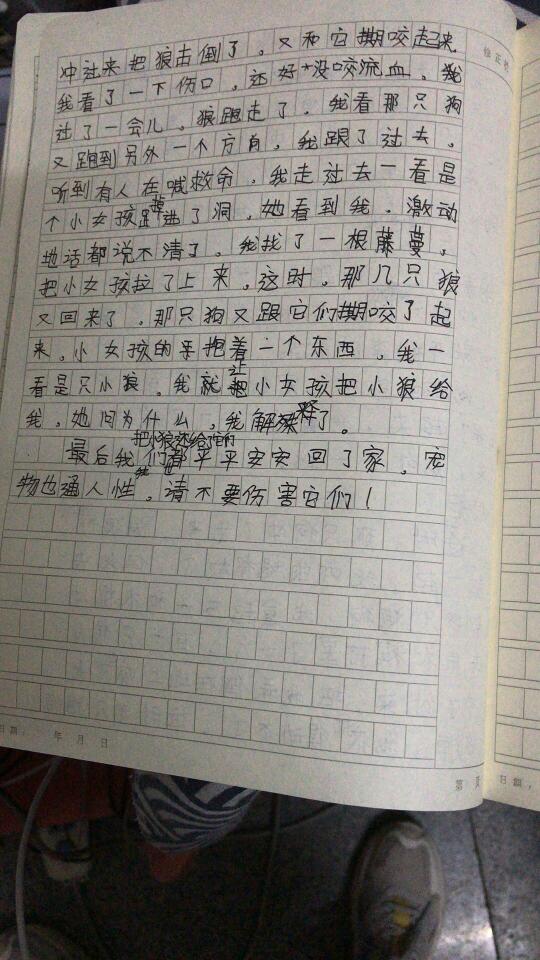 冲过来把狼击倒了。又和它撕咬起来
我看了一下伤口,还好没咬流血。我
过了一会儿,狼跑走了。我看那只狗
又跑到另外一个方向,我跟了过去。
听到有人在喊救命,我走过去一看是
个小女孩掉进了洞,她看到我,激动
地话都说不清了。我找了一根藤蔓,
把小女孩拉了上来,这时,那几只狼
又回来了,那只狗又跟它们撕咬了起
来,小女孩的手抱着一个东西,我一
看是只小狼,我就让小女孩把小狼给
我,她问为什么,我解释了。
把小狼还给它们
最后我们都平平安安回了家,宠
物也通人性,请不要伤害它们!
年 月 日
第 页